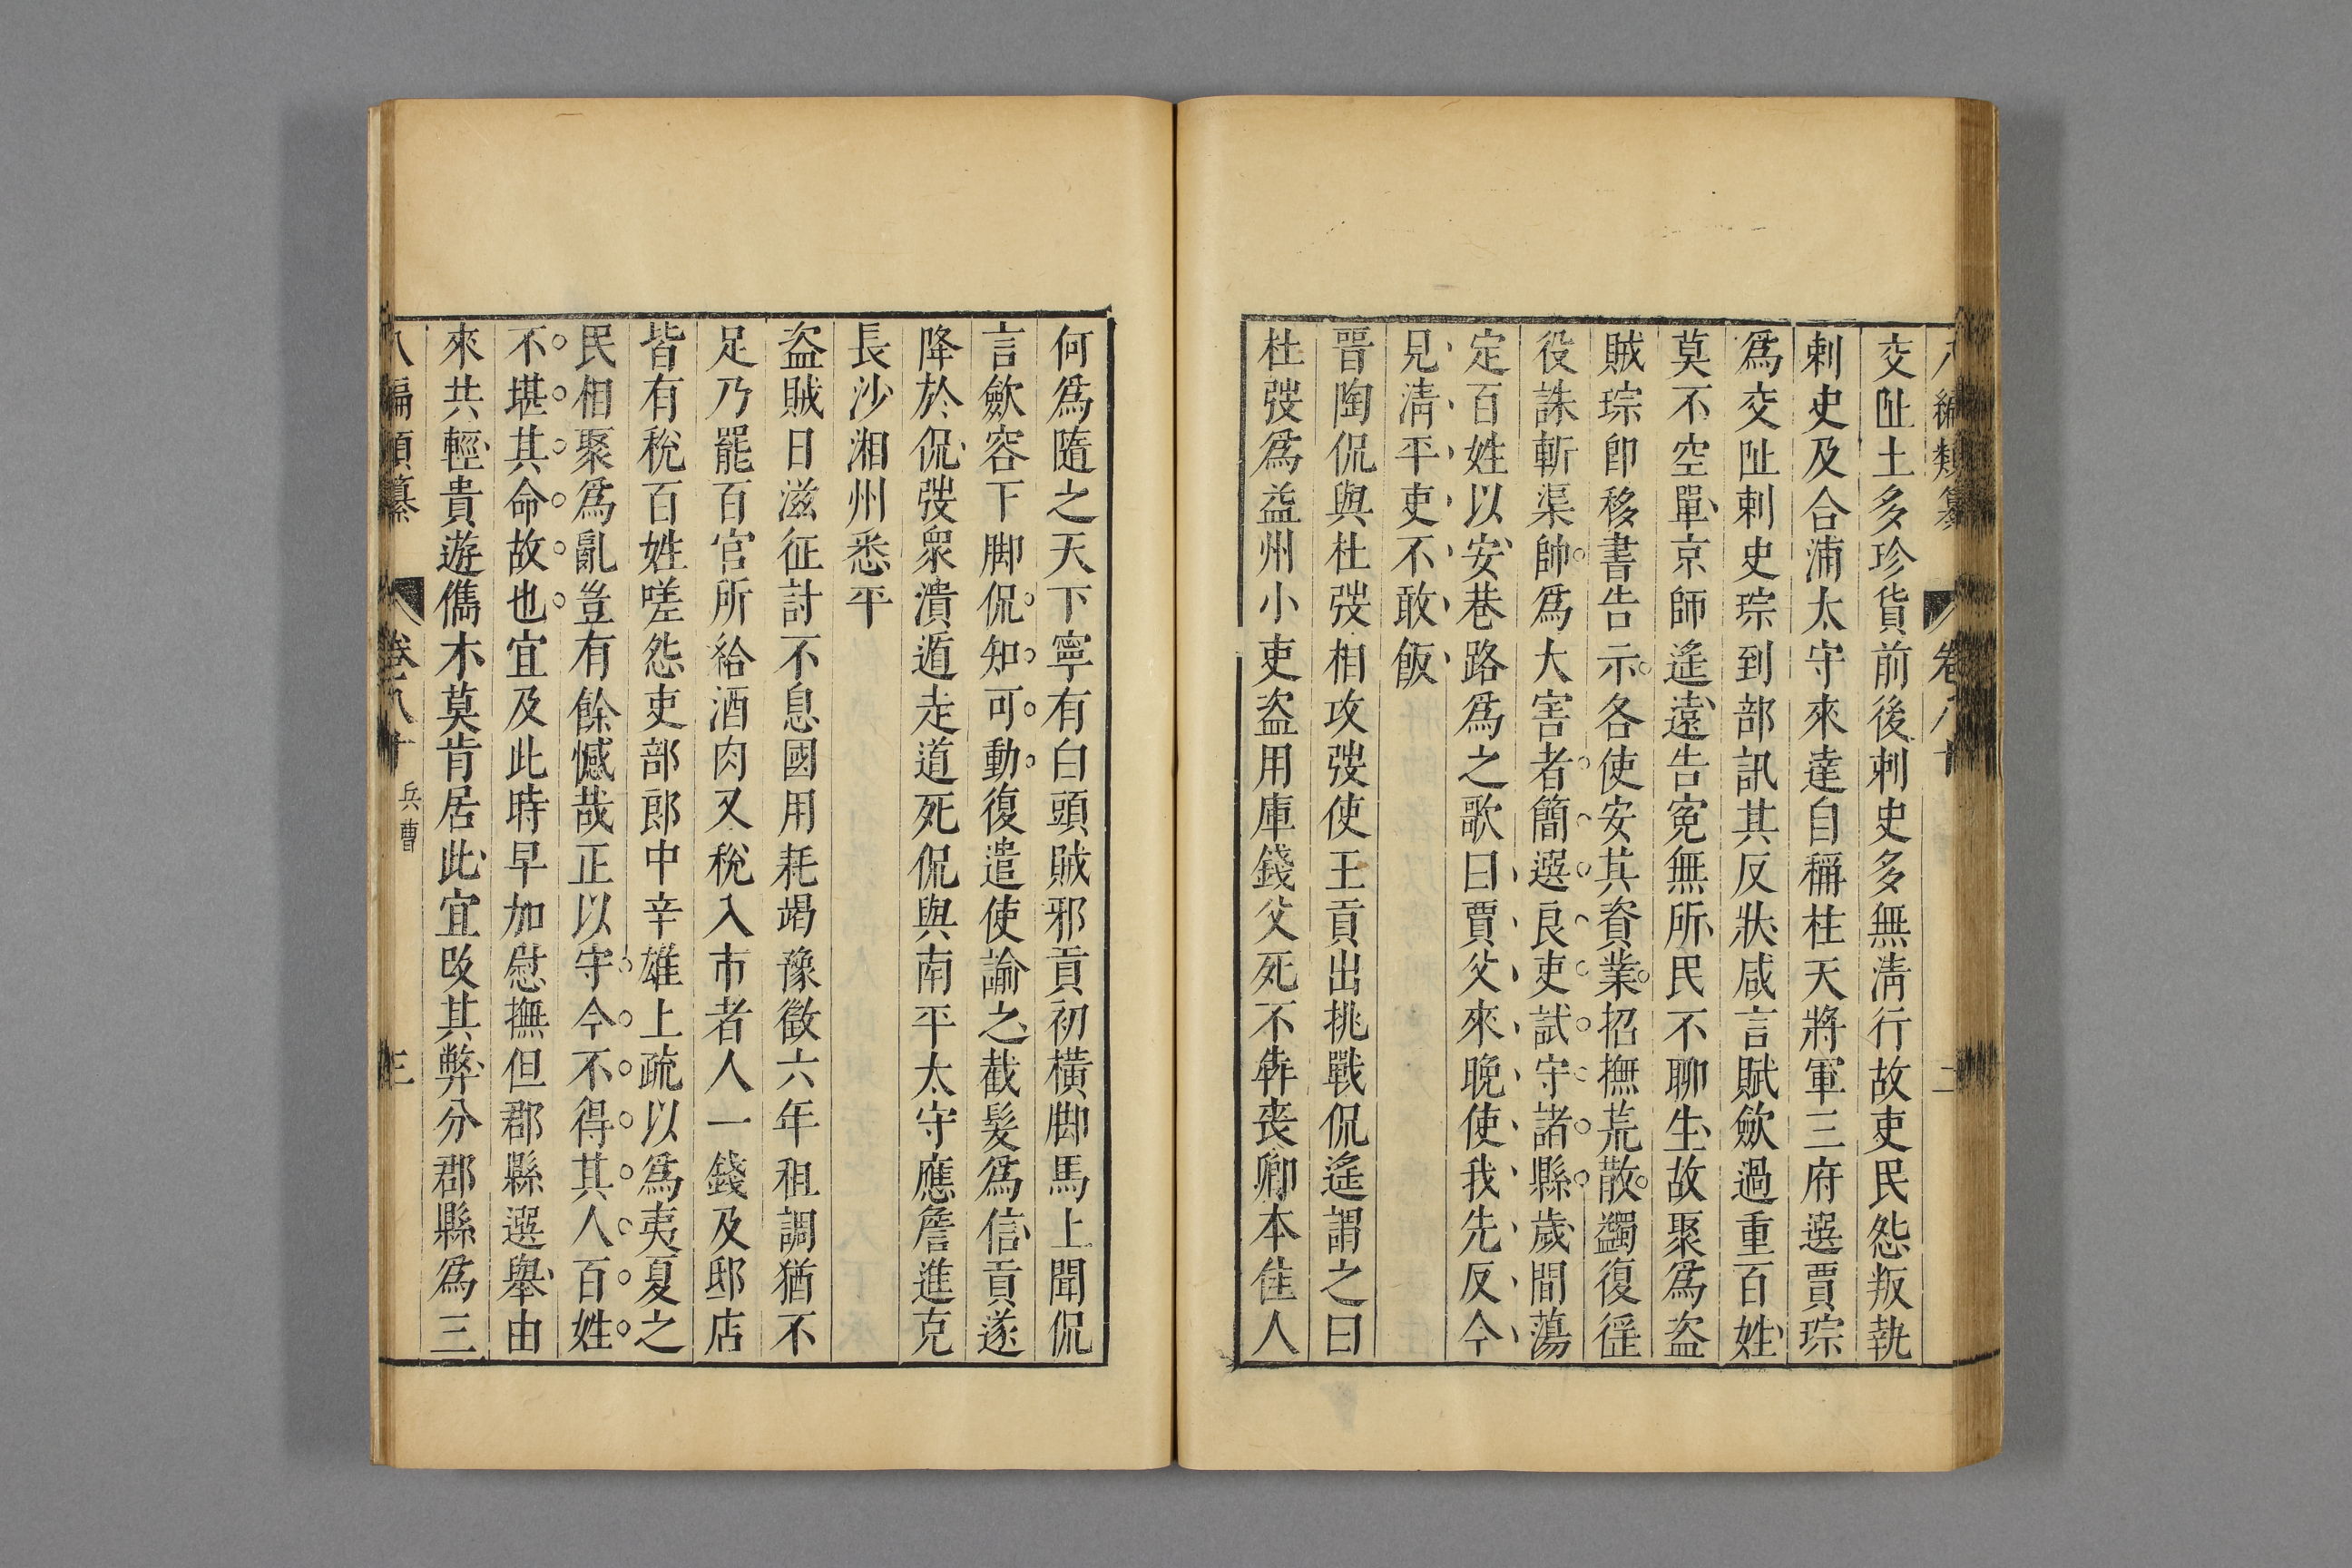 八編類纂 卷八十 二
交阯土多珍貨前後刺史多無淸行故吏民怨叛執
刺史及合浦太守來達自稱柱天將軍三府選賈琮
爲交阯刺史琮到部訊其反狀咸言賦歛過重百姓
莫不空單京師遙遠告寃無所民不聊生故聚爲盗
賊琮卽移書告示各使安其資業招撫荒散蠲復徭
役誅斬渠帥爲大害者簡選良吏試守諸縣歲間蕩
定百姓以安巷路爲之歌曰賈父來晚使我先反今
見淸平吏不敢飯
晉陶侃與杜弢相攻弢使王貢出挑戰侃遙謂之曰
杜弢爲益州小吏盗用庫錢父死不奔喪卿本佳人
何爲隨之天下寧有白頭賊邪貢初橫脚馬上聞侃
言歛容下脚侃知可動復遣使諭之截髮爲信貢遂
降於侃弢衆潰遁走道死侃與南平太守應詹進克
長沙湘州悉平
盗賊日滋征討不息國用耗竭豫徵六年租調猶不
足乃罷百官所給酒肉又稅入市者人一錢及邸店
皆有稅百姓嗟怨吏部郎中辛雄上疏以爲夷夏之
民相聚爲亂豈有餘憾哉正以守令不得其人百姓
不堪其命故也宜及此時早加慰撫但郡縣選舉由
來共輕貴遊儁木莫肯居此宜改其弊分郡縣爲三
八編類纂 卷八十 兵曹 三